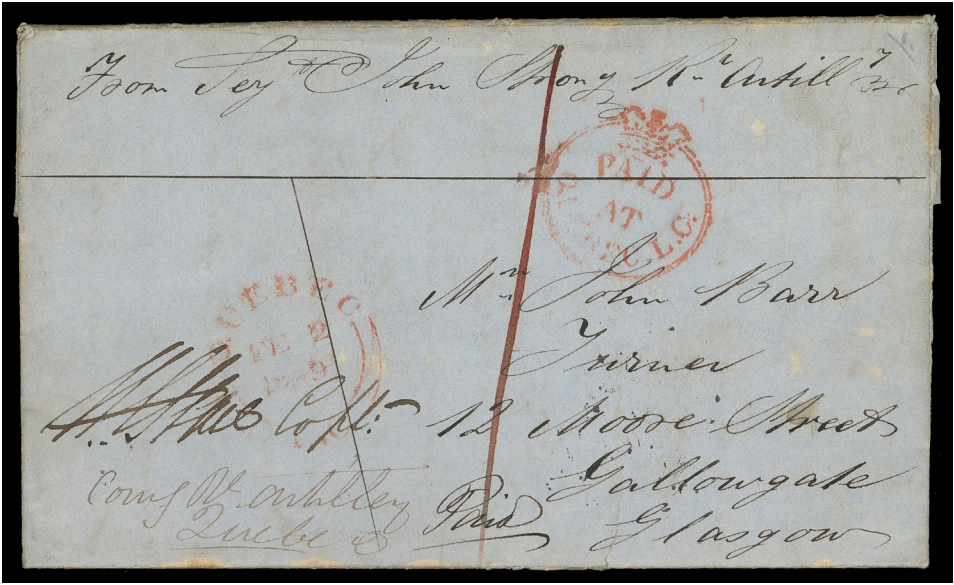 From Serjt John Strong Rl Artill
PAID
AT
QUEBEC L.C.
QUEBEC
FE 2
Mr John Barr
Turner
12 Moore Street
Gallowgate
Glasgow
Capt.
Comg Rl Artillery
Quebec
Paid
1